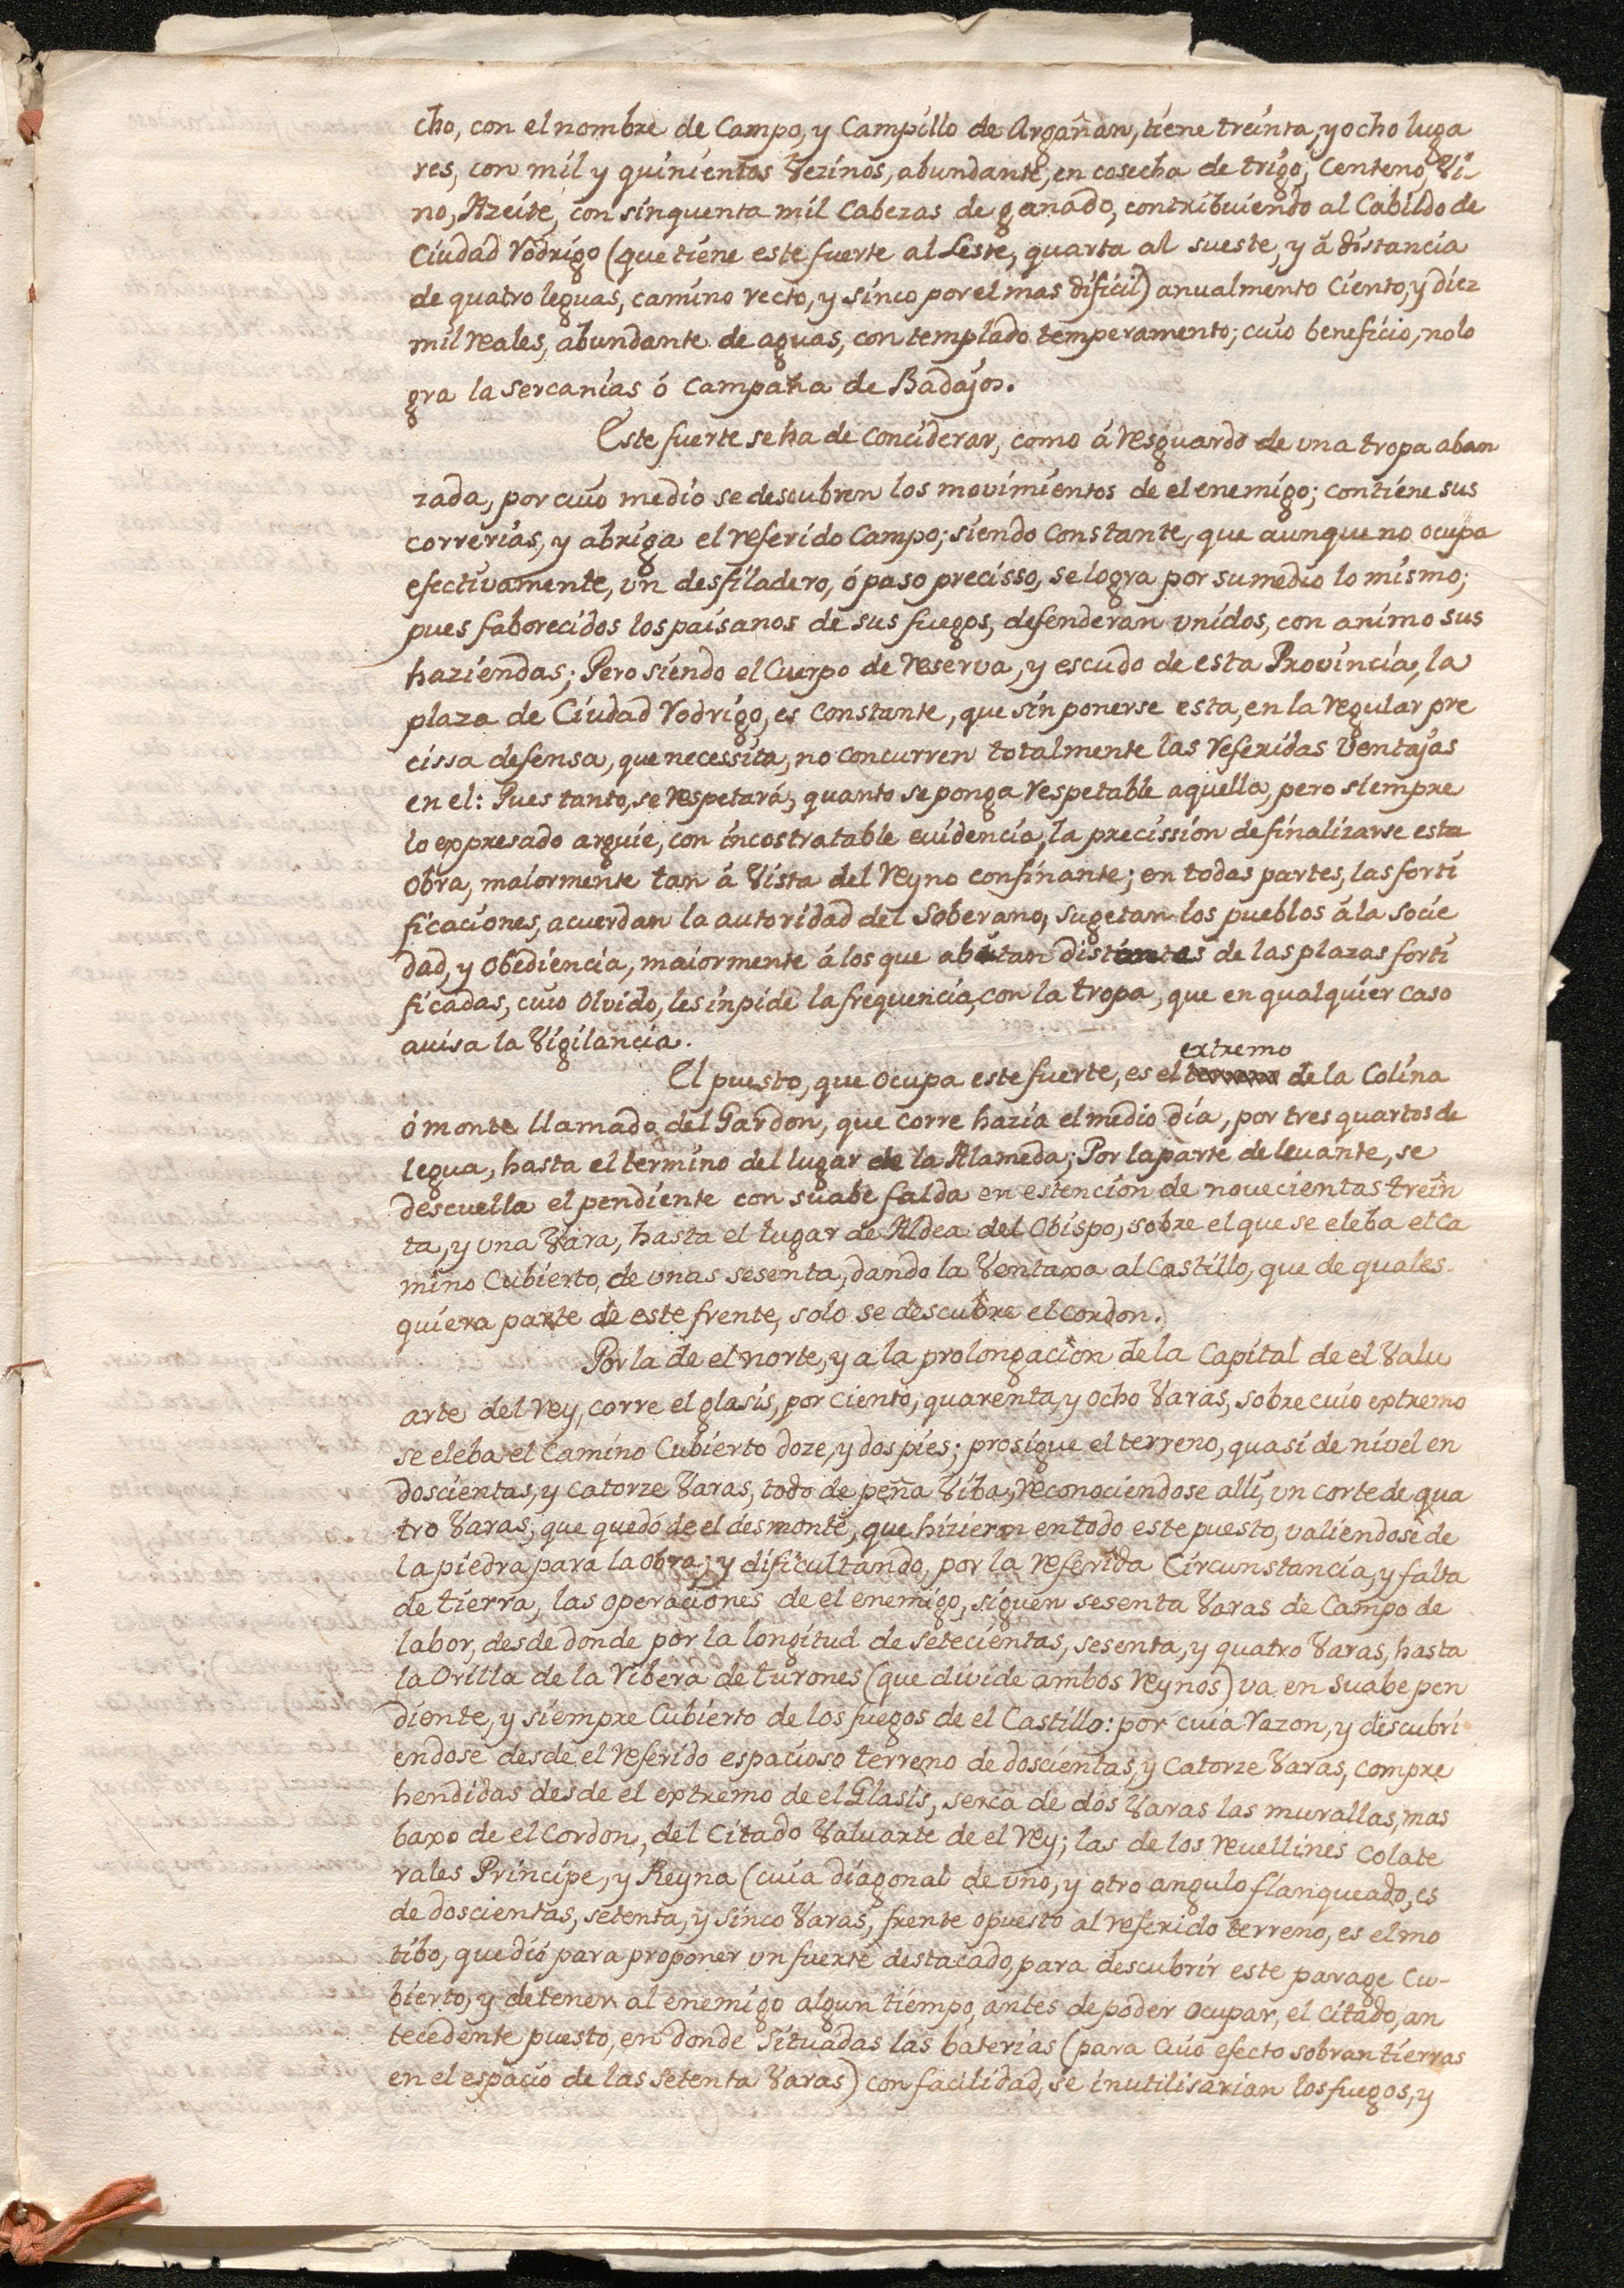 cho, con el nombre de Campo, y Campillo de Argañan, tiene treinta, y ocho luga
res, con mil y quinientos Vezinos, abundante, en cosecha de trigo, Centeno, Vi
no, Azeite, con sinquenta mil Cabezas de ganado, contribuiendo al Cabildo de
Ciudad Rodrigo (que tiene este fuerte al Leste, quarta al sueste, y á distancia
de quatro leguas, camino recto, y sinco por el mas dificil) anualmento Ciento, y diez
mil reales, abundante de aguas, con templado temperamento; cuio beneficio, no lo
gra la sercanias ó Campaña de Badajos.
Este fuerte se ha de conciderar, como á resguardo de una tropa aban
zada, por cuio medio se descubren los movimientos de el enemigo; contiene sus
correrias, y abriga el referido Campo; siendo constante, que aunque no ocupa
efectivamente, vn desfiladero, ó paso precisso, se logra por su medio lo mismo;
pues faborecidos los paisanos de sus fuegos, defenderan vnidos, con animo sus
haziendas; Pero siendo el Cuerpo de reserva, y escudo de esta Provincia, la
plaza de Ciudad Rodrigo, es constante, que sin ponerse esta, en la regular pre
cissa defensa, que necessita, no concurren totalmente las referidas Ventajas
en el: Pues tanto, se respetará, quanto se ponga respetable aquella, pero siempre
lo expresado arguie, con incostratable evidencia, la precission de finalizarse esta
Obra, maiormente tan á Vista del Reyno confinante; en todas partes, las forti
ficaciones, acuerdan la autoridad del Soberano, sugetan los pueblos á la socie
dad, y Obediencia, maiormente á los que abitan distantes de las plazas forti
ficadas, cuio Olvido, les inpide la frequencia, con la tropa, que en qualquier caso
avisa la Vigilancia.
extremo
El puesto, que ocupa este fuerte, es el de la Colina
ó monte llamado del Gardon, que corre hazia el medio dia, por tres quartos de
legua, hasta el termino del lugar de la Alameda; Por la parte de levante, se
descuella el pendiente con suabe falda en estencion de novecientas trein
ta, y una Vara, hasta el lugar de Aldea del Obispo, sobre el que se eleba el Ca
mino Cubierto, de unas sesenta, dando la Ventaxa al Castillo, que de quales-
quiera parte de este frente, solo se descubre el cordon.
Por la de el norte, y a la prolongacion de la Capital de el Valu
arte del Rey, corre el glasis, por ciento, quarenta, y ocho Varas, sobre cuio extremo
se eleba el Camino Cubierto doze, y dos pies; prosigue el terreno, quasi de nivel en
doscientas, y catorze Varas, todo de peña Viba, reconociendose alli, vn corte de qua
tro Varas, que quedó de el desmonte, que hizieron en todo este puesto, valiendose de
la piedra para la obra; y dificultando, por la referida Circunstancia, y falta
de tierra, las operaciones de el enemigo, siguen sesenta Varas de Campo de
labor, desde donde por la longitud de setecientas, sesenta, y quatro Varas, hasta
la Orilla de la Ribera de turones (que divide ambos Reynos) va en suabe pen
diente, y siempre Cubierto de los fuegos de el Castillo: por cuia razon, y discubri
endose desde el referido espacioso terreno de doscientas, y Catorze Varas, compre
hendidas desde el extremo de el Glasis, serca de dos Varas las murallas, mas
baxo de el Cordon, del Citado Valuarte de el Rey; las de los revellines Colate
rales Principe, y Reyna (cuia diagonal de vno, y otro angulo flanqueado, es
de doscientas, setenta, y sinco Varas, frente opuesto al referido terreno, es el mo
tibo, que dió para proponer vn fuerte destacado, para descubrir este parage Cu-
bierto, y detener al enemigo algun tiempo, antes de poder ocupar, el citado, an
tecedente puesto, en donde Situadas las baterias (para cuio efecto sobran tierras
en el espacio de las setenta Varas) con facilidad, se inutilisarian los fuegos, y